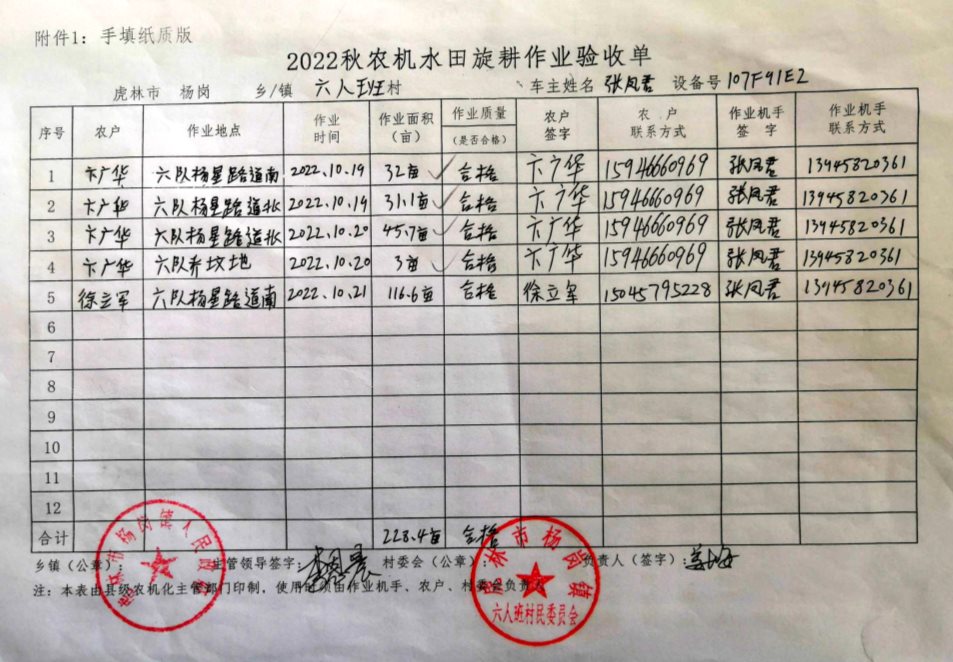 附件1：手填纸质版
2022秋农机水田旋耕作业验收单
虎林市 杨岗 乡/镇 六人班村 车主姓名 张凤君 设备号 107F91E2
序号 农户 作业地点 作业时间 作业面积（亩） 作业质量（是否合格） 农户签字 农户联系方式 作业机手签字 作业机手联系方式
1 卞广华 六队杨星路道南 2022.10.19 32亩 ✓ 合格 卞广华 15946660969 张凤君 13945820361
2 卞广华 六队杨星路道北 2022.10.19 31.1亩 ✓ 合格 卞广华 15946660969 张凤君 13945820361
3 卞广华 六队杨星路道北 2022.10.20 45.7亩 ✓ 合格 卞广华 15946660969 张凤君 13945820361
4 卞广华 六队乔坟地 2022.10.20 3亩 ✓ 合格 卞广华 15946660969 张凤君 13945820361
5 徐立军 六队杨星路道南 2022.10.21 116.6亩 合格 徐立军 15045795228 张凤君 13945820361
6
7
8
9
10
11
12
合计 228.4亩 合格
乡镇（公章）： 主管领导签字： 村委会（公章）： 负责人（签字）：
注：本表由县级农机化主管部门印制，使用时须由作业机手、农户、村委会负责人
虎林市杨岗镇人民政府
虎林市杨岗镇
六人班村民委员会